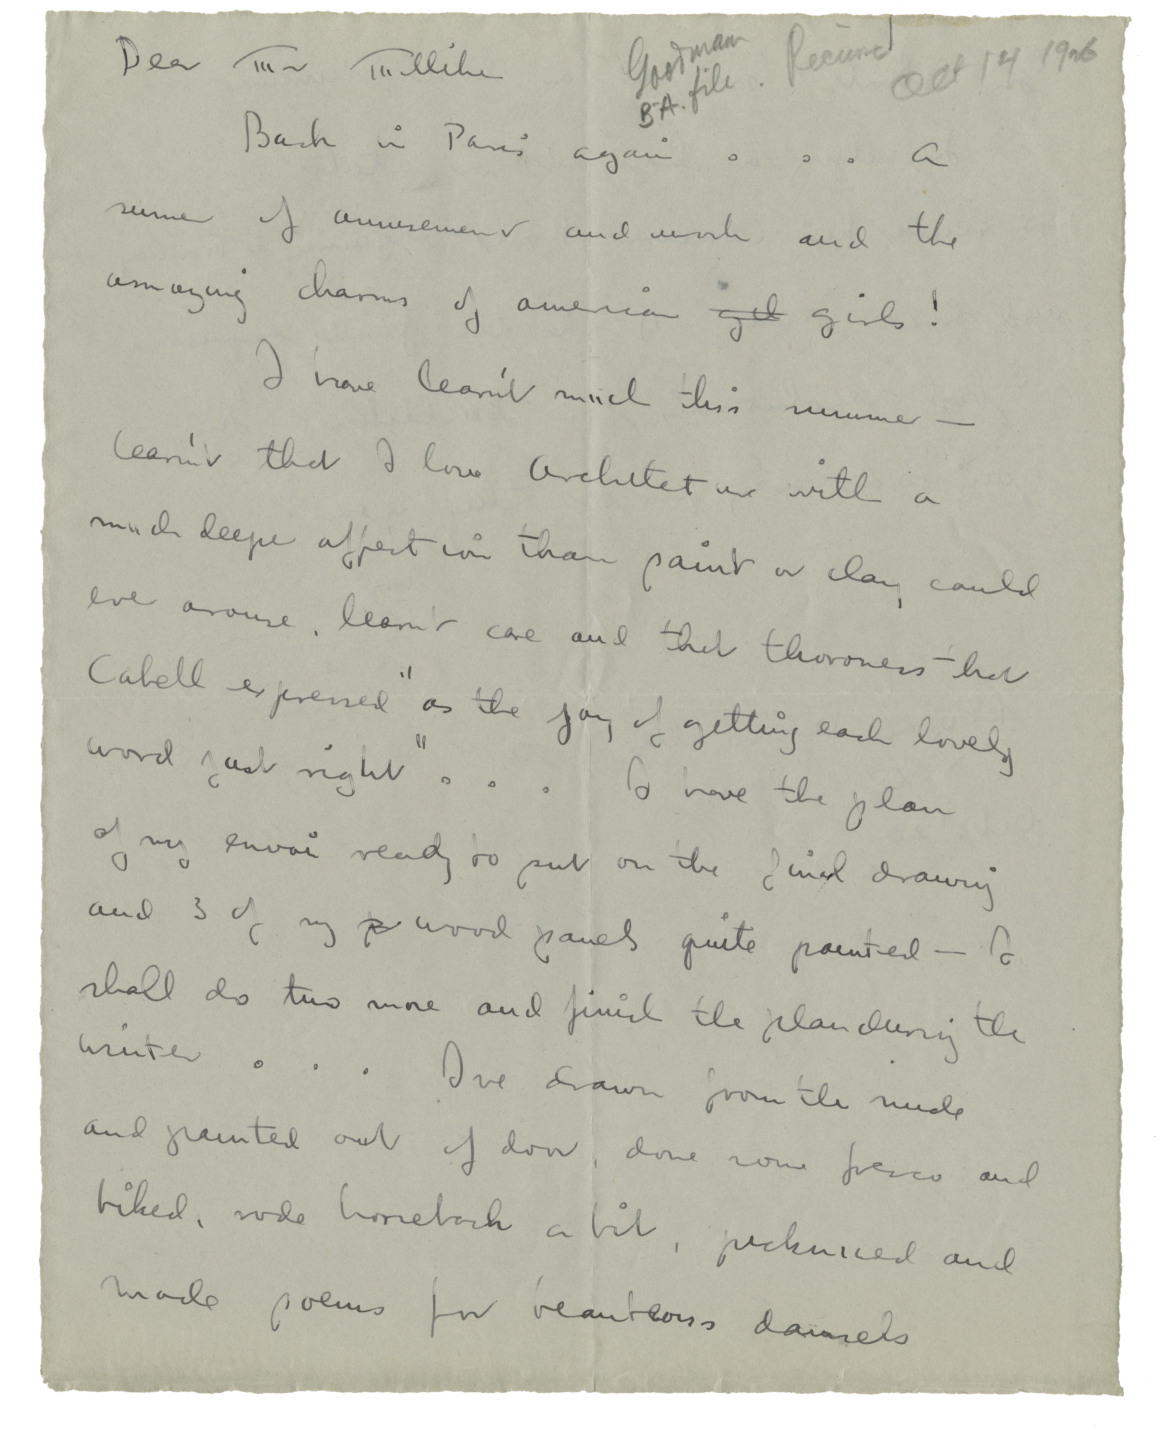 Dear Mr Milliken
Goodman
B.A. file.
Received
Oct 14 1926
Back in Paris again . . . a
summer of amusement and work and the
amazing charms of american gil girls!
I have learn't much this summer —
learn't that I love architecture with a
much deeper affection than paint or clay could
ever arouse, learnt care and that thoroness that
Cabell expressed "as the joy of getting each lovely
word just right" . . . I have the plan
of my envoi ready to put on the final drawing
and 3 of my p wood panels quite painted — I
shall do two more and finish the plan during the
winter . . . I've drawn from the nude
and painted out of door, done some fresco and
biked, rode horseback a bit, pickniced and
made poems for beauteous damsels